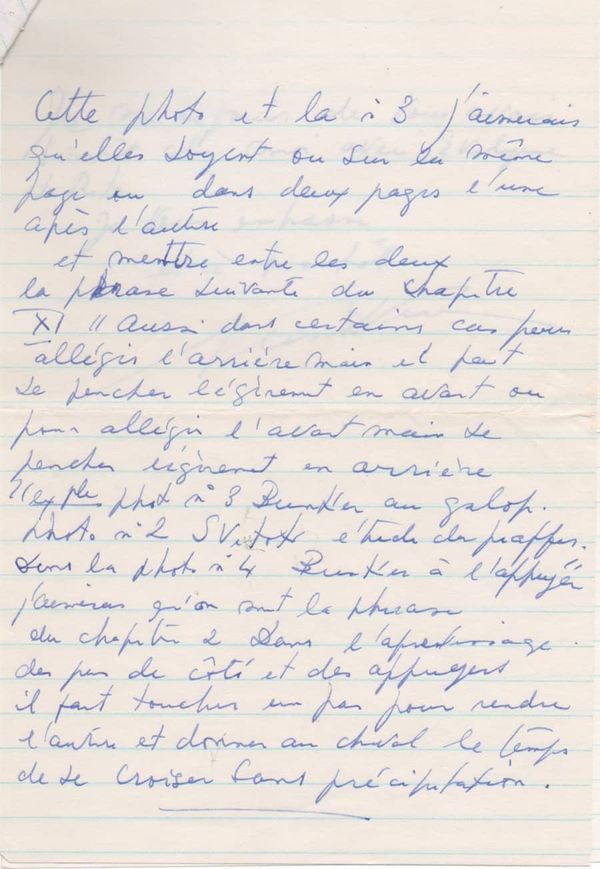 Cette photo et la n 3 j'aimerais
qu'elles soyent ou sur la même
page ou dans deux pages l'une
après l'autre
et mettre entre les deux
la phrase suivante du chapitre
XI " aussi dans certains cas pour
allégir l'arrière main il faut
se pencher légèrement en avant ou
pour allégir l'avant main se
pencher légèrement en arrière
"exple phot n° 3 Bunker au galop.
photo n° 2 étude du piaffer.
Sous la photo n° 4 Bunker à l'appuyer
j'aimerais qu'on mit la phrase
du chapitre 2 Dans l'apprentissage
des pas de côté et des appuyers
il faut toucher un pas pour rendre
l'autre et donner au cheval le temps
de se croiser sans précipitation.